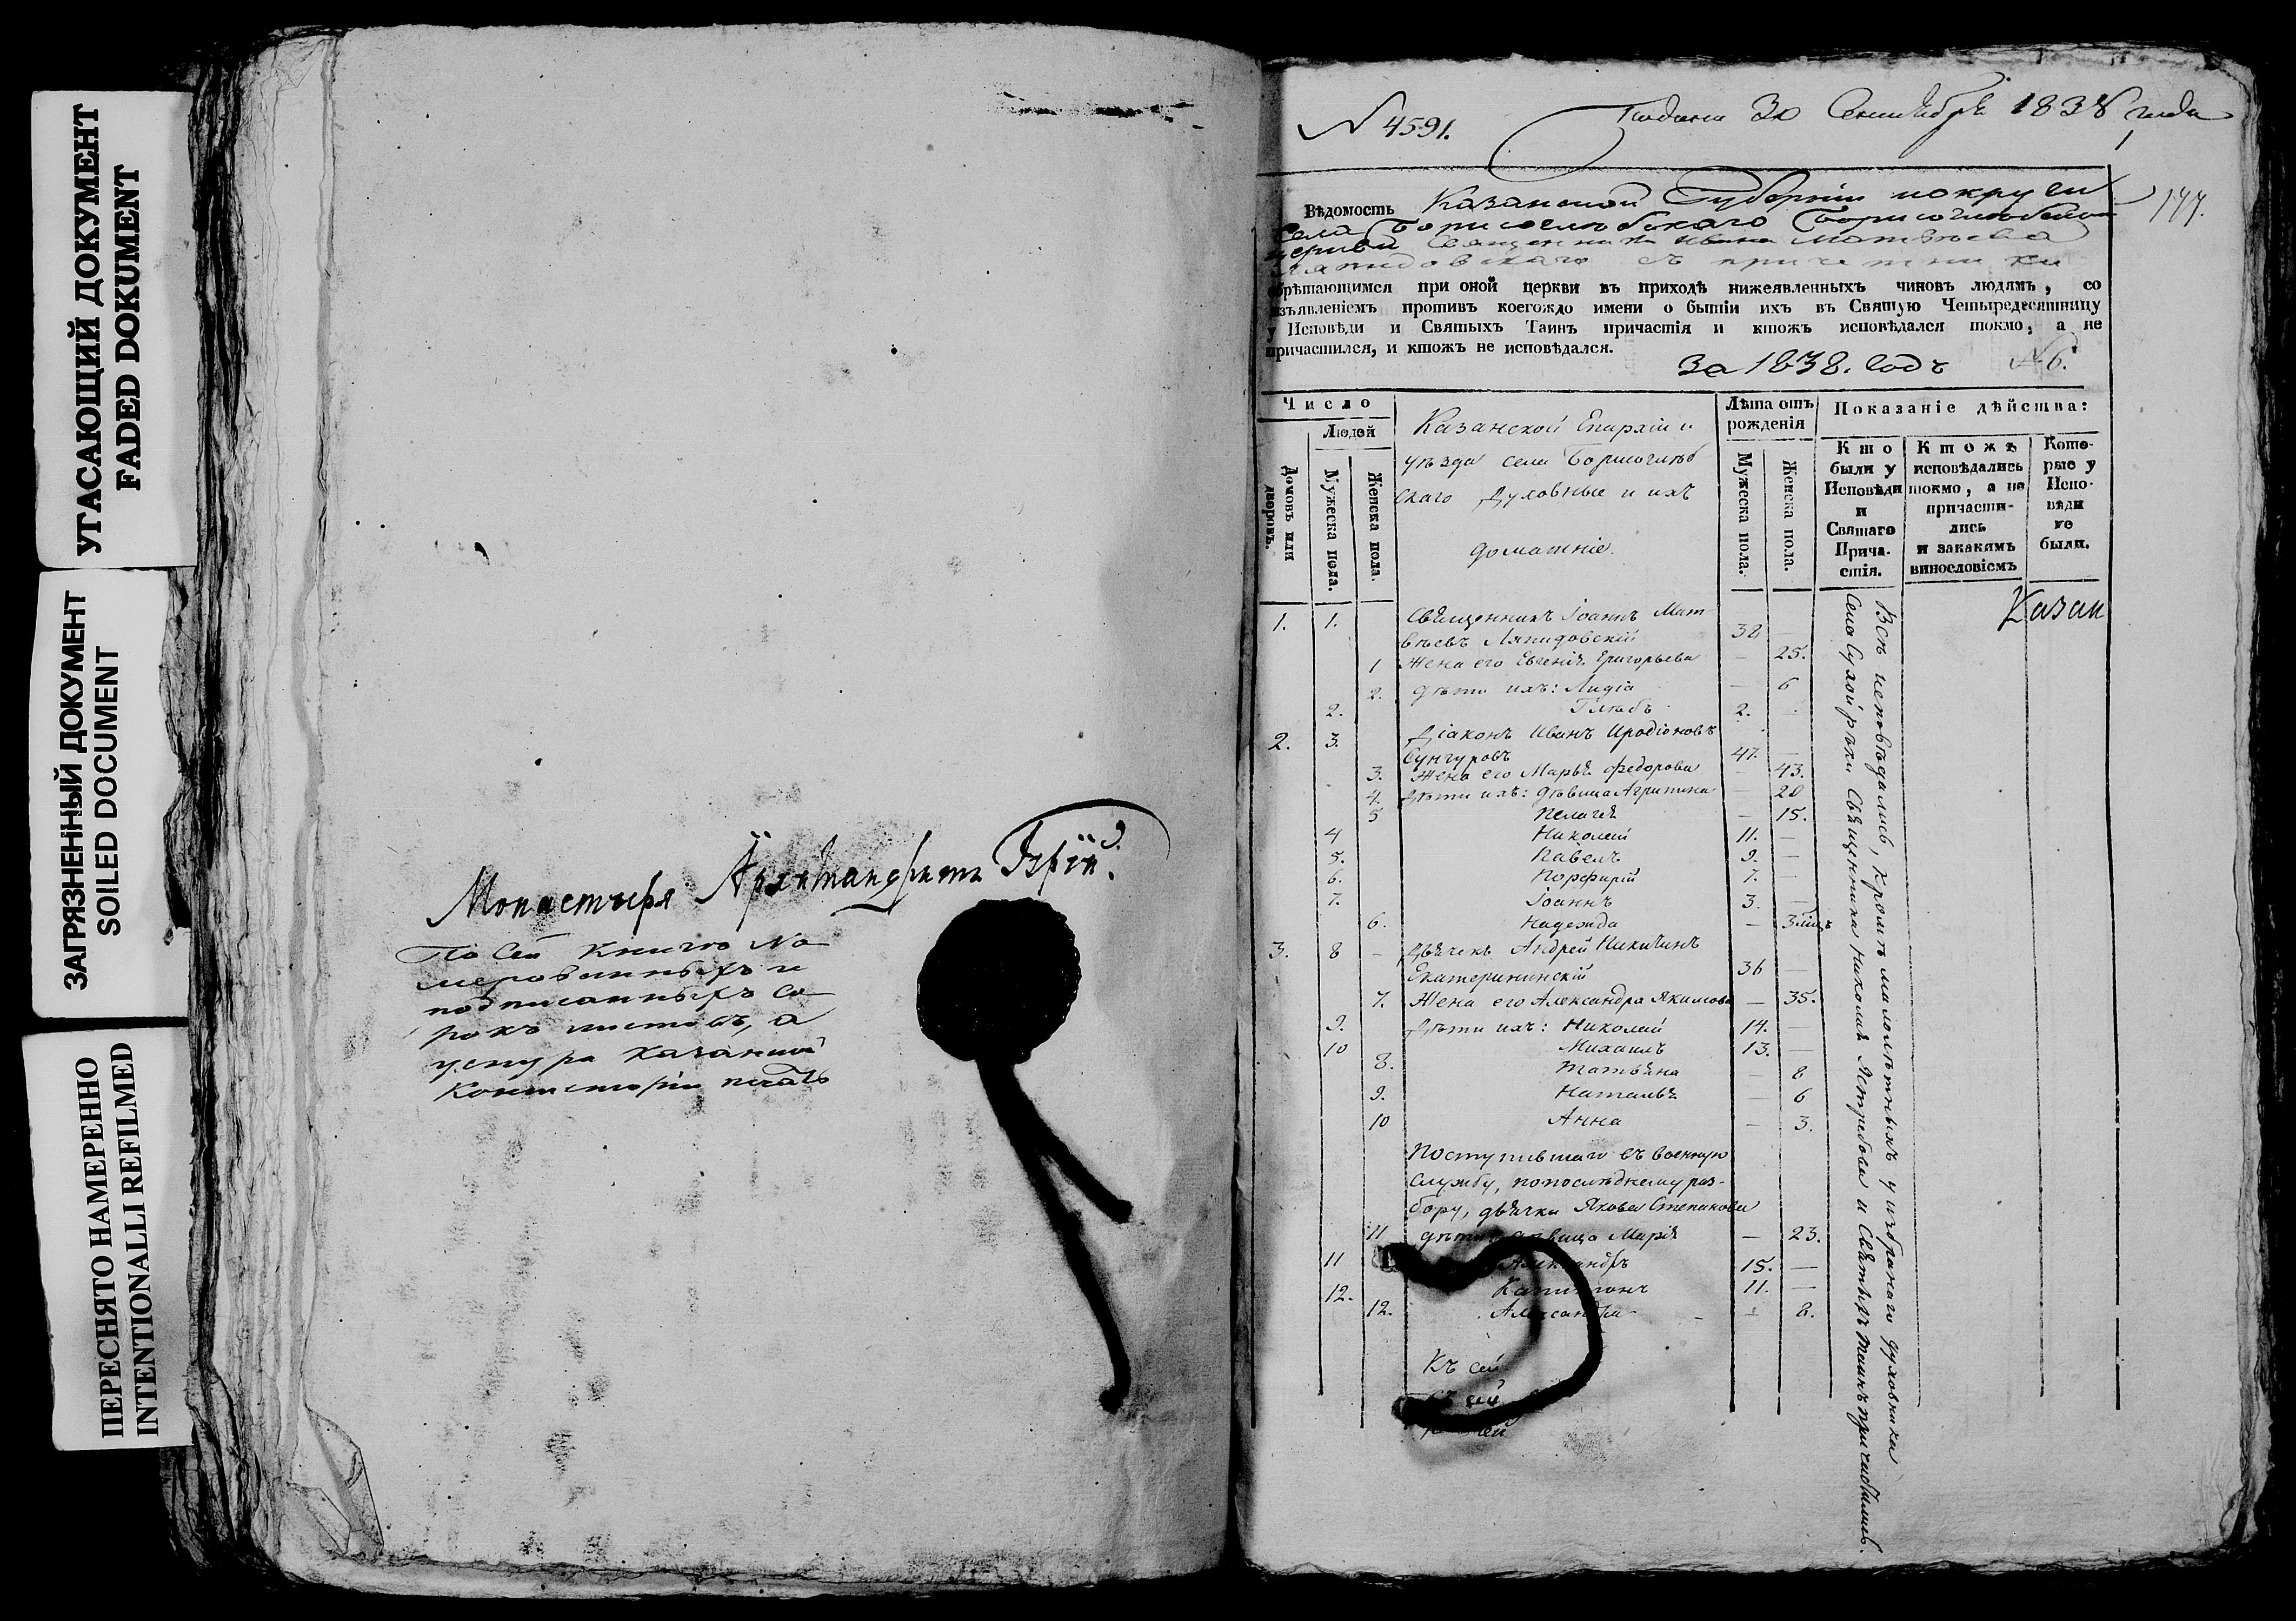 УГАСАЮЩИЙ ДОКУМЕНТ
FADED DOKUMENT
ЗАГРЯЗНЕННЫЙ ДОКУМЕНТ
SOILED DOCUMENT
ПЕРЕСНЯТО НАМЕРЕННО
INTENTIONALLI REFILMED
Монастыря Архимандритъ
По сей книгѣ но
мерованныхъ и
подписанныхъ со
рокъ листовъ, а
у снура Казанской
Консисторіи печать
N 4591.
Подана 30 Сентября 1838 года
1
177.
Вѣдомость Казанской Губерніи и округи
села Борисоглѣбскаго Борисоглѣбской
церкви Священника Ивана Матвѣева
Ляпидовскаго съ причетники
обрѣтающимся при оной церкви въ приходѣ нижеявленныхъ чиновъ людямъ, со
изъявленіемъ противъ коегождо имени о бытіи ихъ въ Святую Четыредесятницу
у Исповѣди и Святыхъ Таинъ причастія и ктожъ исповѣдался токмо, а не
причастился, и ктожъ не исповѣдался.
За 1838. годъ N 6.
Число
Людей
Домовъ или дворовъ.
Мужеска пола.
Женска пола.
Казанской Епархіи и
уѣзда села Борисоглѣб
скаго Духовные и ихъ
домашніе.
Лѣта отъ рожденія
Мужеска пола.
Женска пола.
Показаніе дѣйства:
Кто были у Исповѣди и Святаго Прича-стія.
Ктожъ исповѣдались токмо, а не причасти-лись и закакимъ винословіемъ
Кото-рые у Испо-вѣди не были.
Казан
1. 1. Священникъ Іоаннъ Мат
вѣевъ Ляпидовскій 38 —
1 Жена его Евгенія Григорьева — 25.
2. Дѣти ихъ: Лидія — 6
2. Глѣбъ 2. —
2. 3. Діаконъ Иванъ Иродіоновъ
Сунгуровъ 47. —
3. Жена его Марья Федорова — 43.
4. Дѣти ихъ: дѣвица Агрипина — 20
5 Пелагея — 15.
4 Николай 11. —
5. Павелъ 9. —
6. Порфирій 7. —
7. Іоаннъ 3. —
6. Надежда — 3 мцъ
3. 8 — Дьячекъ Андрей Никитинъ
Екатерининскій 36 —
7. Жена его Александра Якимова — 35.
9. Дѣти ихъ: Николай 14. —
10 Михаилъ 13. —
8. Татьяна — 8
9. Наталья — 6
10 Анна — 3.
Поступившаго въ военную
службу, попослѣднему раз-
бору, дьячка Якова Степанова
11 дѣти: дѣвица Марія — 23.
11 Александръ 15. —
12. Капитонъ 11. —
12. Александра — 8.
Къ сей
Къ сей
Всѣ исповѣдались, кромѣ малолѣтныхъ у избраннаго духовника
Села Сухой рѣки Священника Николая Ястребова и Святыхъ Таинъ причастились.